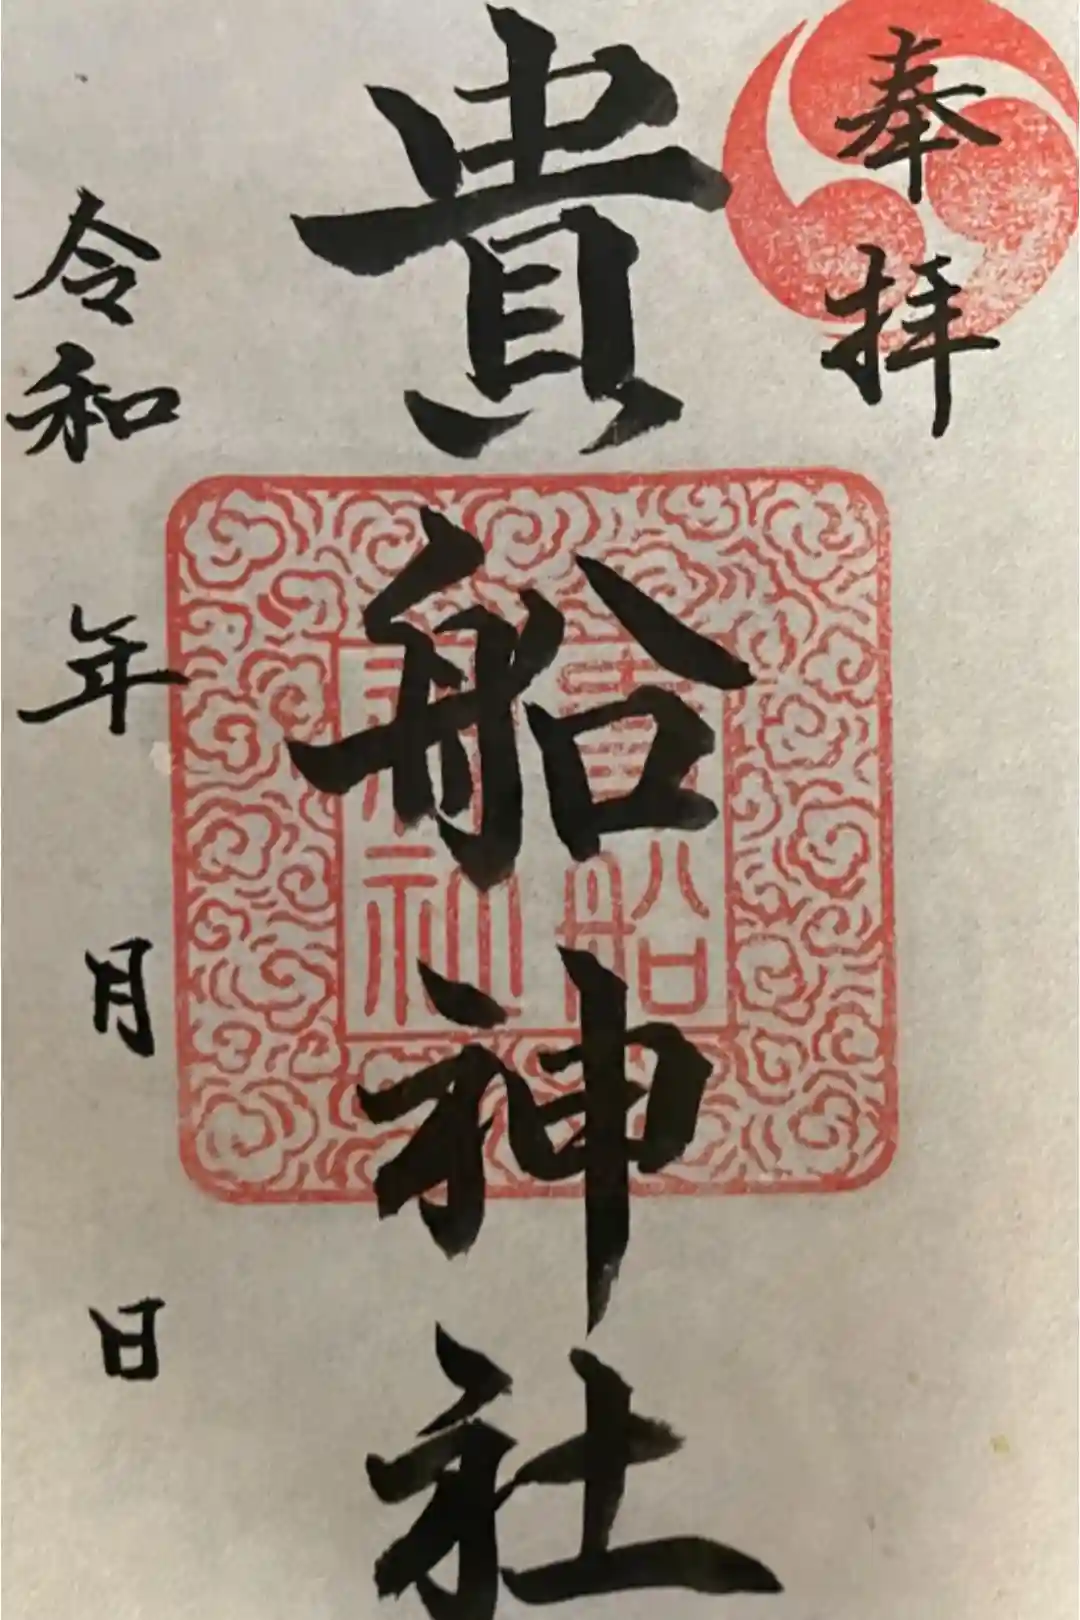 奉拝
貴船神社
貴船
神社
令和 年 月 日